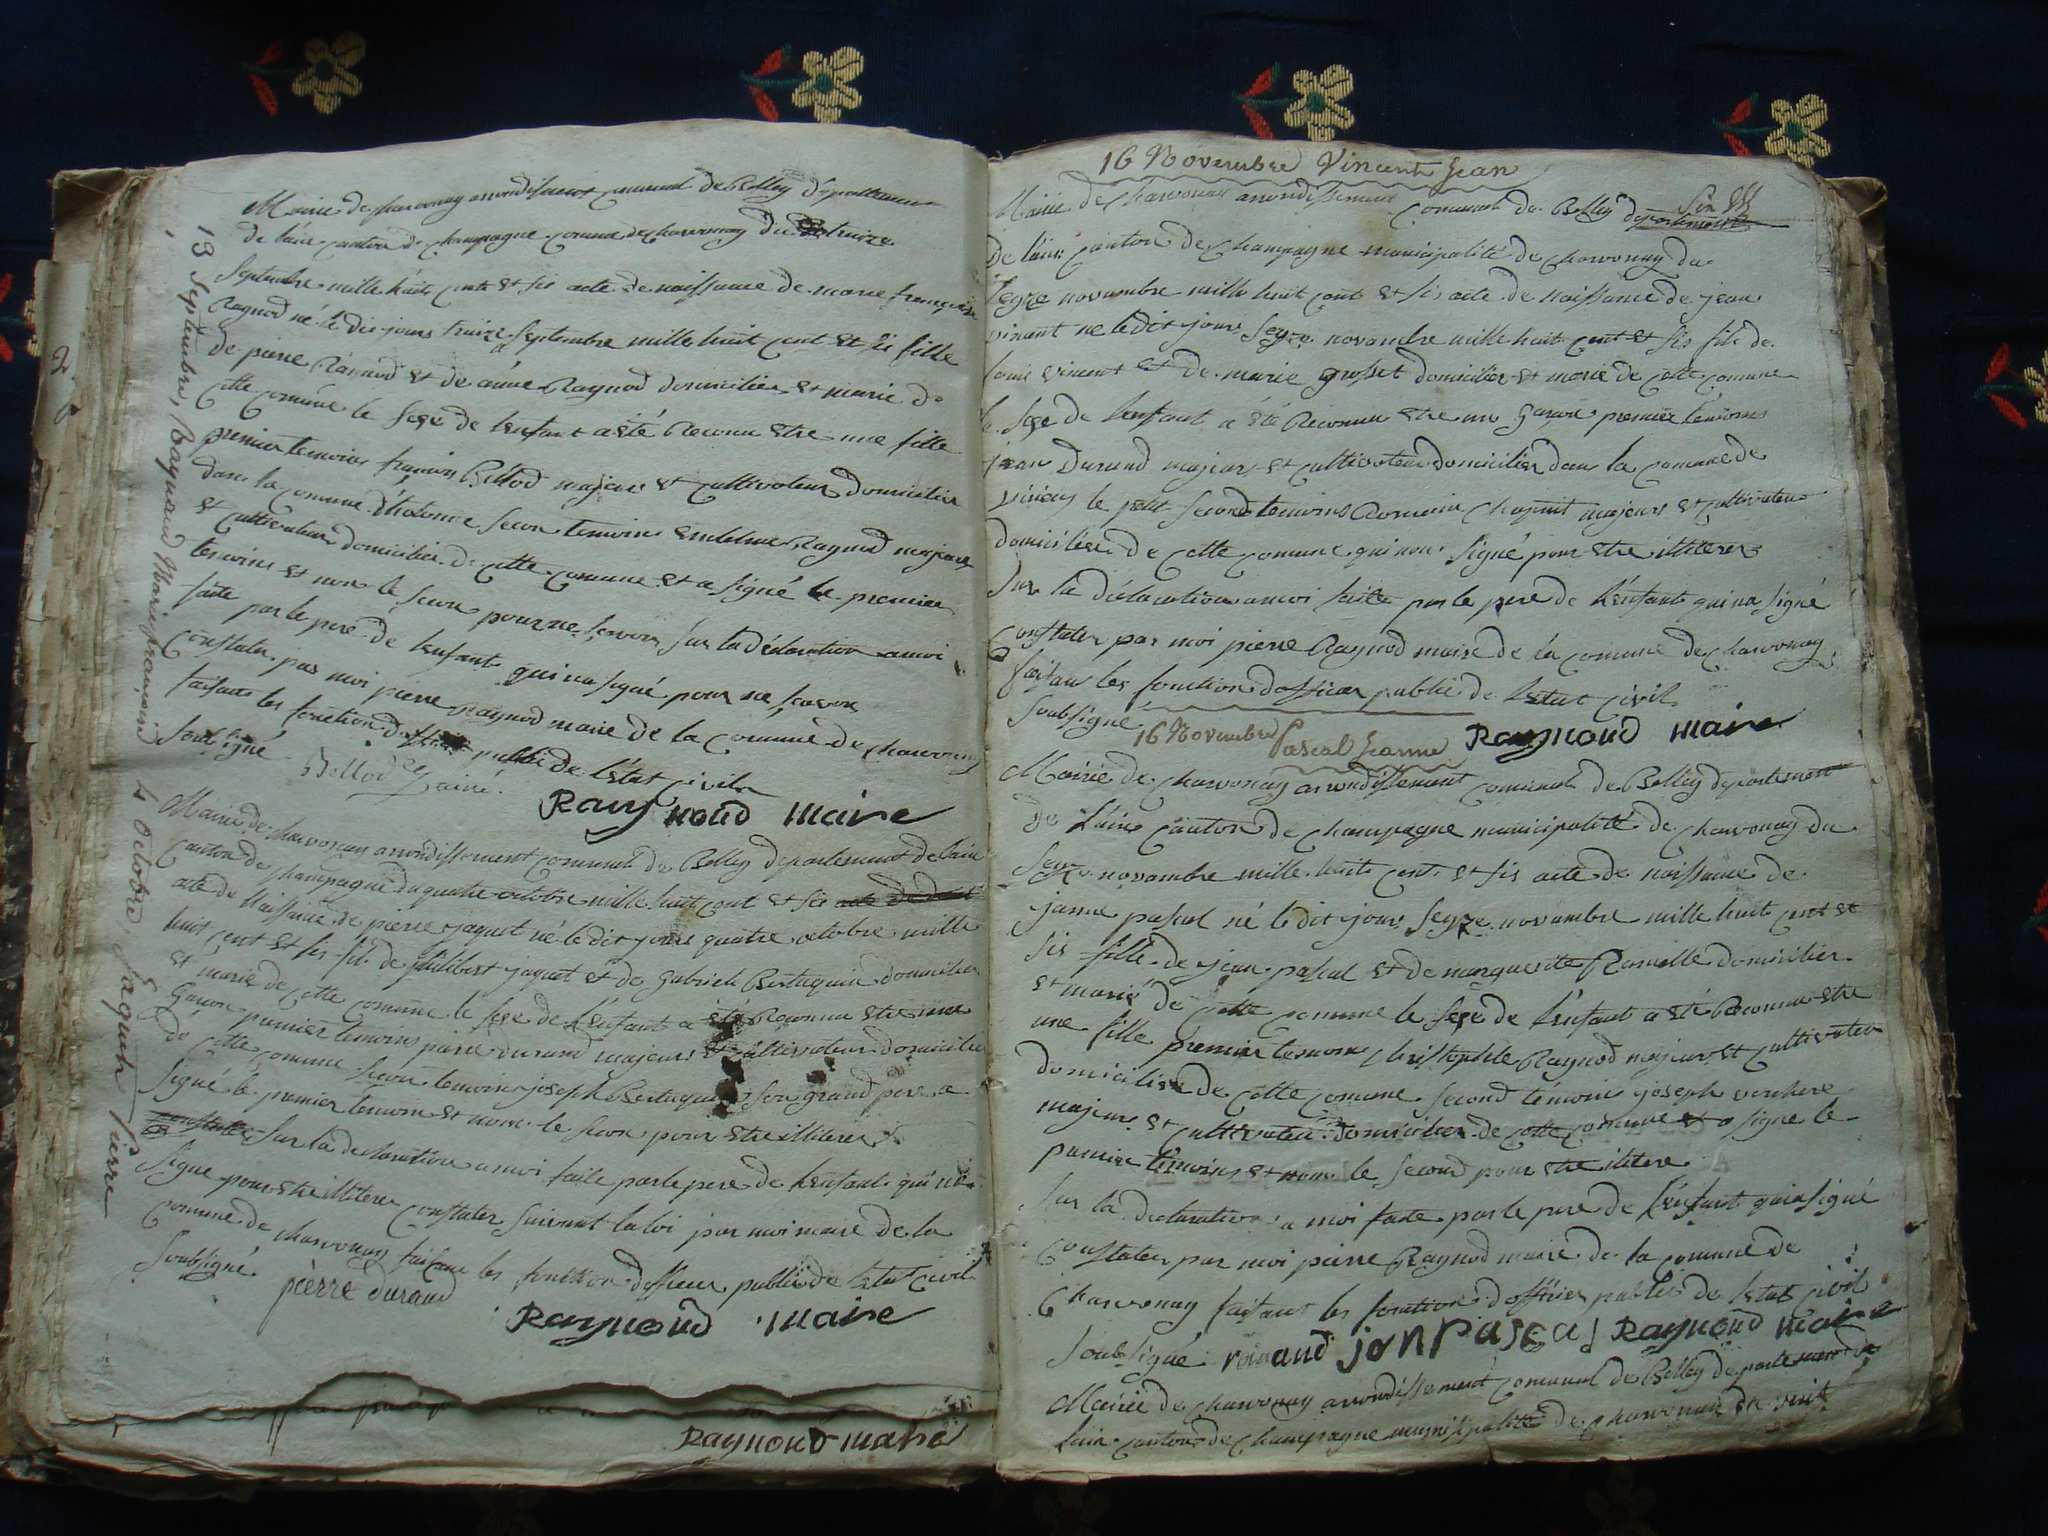 Mairie de charvonay arrondissement communal de Belley département
de l'ain canton de champagne comune de charvonay du treize
Septembre mille huit cents et six acte de naissance de marie françoise
Raynod né le dit jours treize Septembre mille huit cent et six fille
de pierre Raynod et de Raynod domicilies et marié de
cette comune le sexe de lenfant a été Reconu etre une fille
premier temoins françois Bellod majeur et cultivateur domicilier
dans la comune secon temoins Raynod majeur
et cultivateur domicilier de cette comune et a signé le premier
temoins et non le secon pour ne savoir sur la déclaration a moi
faite par le pere de lenfant qui na signé pour ne savoir
constater par moi pierre raynod maire de la comune de charvonay
faisant les fonction public de létat civil
soubsigné Bellod l'ainé.
Raymond maire
13 Septembre, Raymond Marie françoise
Mairie de charvonay arrondissement communal de Belley departement de lain
canton de champagne du quatre octobre mille huit cent et six acte de
acte de Naissance de pierre jaquet né le dit jours quatre octobre mille
huit cent et six fils de philibert jaquet et de Gabriele domicilier
et marié de cette comune le sexe de lenfant a été Reconu etre une
Garçon premier temoins pierre durand majeur et cultivateur domicilier
de cette comune secon temoins joseph son grand pere a
signé le premier temoin et non le secon pour etre illiterer
constater sur la declaration a moi faite par le pere de lenfant qui
signe pour etre illiterer constater suivant la loi par moi maire de la
comune de charvonay faisant les fonction dofficier public de letat civil
soubsigné. pierre durand
Raymond maire
4 Octobre, Jaquet Pierre
Raymond maire
16 Novembre Vincent Jean
Mairie de charvonay arrondissement comunal de Belley departement
de lain canton de champagne municipalité de charvonay du
seyze novembre mille huit cent et six acte de naissance de jean
vincent né le dit jours seyze novembre mille huit cent et six fils de
louis vincent et de marie grosset domicilier et marié de cette comune
le sexe de lenfant a été Reconnu etre un Garçon premier témoins
jean Durand majeur et cultivateur domicilier dans la comune de
virieu le petit second temoins Romain majeurs et cultivateur
domicilier de cette comune qui non signé pour etre illiterer
sur la déclaration a moi faite par le pere de lenfant qui na signé
constater par moi pierre Raynod maire de la comune de charvonay
faisant les fonction dofficier public de letat civil
soubsigné Raymond maire
16 Novembre Pascal Jeanne
Mairie de charvonay arrondissement comunal de Belley departement
de Lain canton de champagne municipalité de charvonay du
seyze novembre mille huit cent et six acte de naissance de
janne pascal né le dit jours seyze novembre mille huit cent et
six fille de jean pascal et de marguerite Ramelle domicilier
et marié de cette comune le sexe de lenfant a été Reconnu etre
une fille premier temoins christophle Raynod majeur et cultivateur
domicilier de cette comune second témoins joseph
majeur et cultivateur domicilier de cette comune et a signé le
premier témoins et non le second pour etre ilitere
sur la declaration a moi faite par le pere de lenfant qui a signé
constater par moi pierre Raynod maire de la comune de
charvonay faisant les fonction dofficier public de letat civil
soubsigné roinaud jan Pascal Raymond maire
Mairie de charvonay arrondissement comunal de Belley departement de
lain canton de champagne municipalité de charvonay du vint